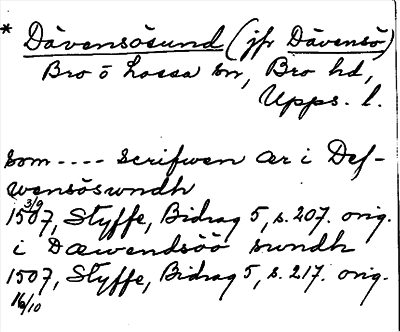 * Dävensösund (jfr Dävensö)
Bro o Lossa sn, Bro hd,
Upps. l.
som ---- scrifwen ær i Def-
wensöswndh
3/9
1507, Styffe, Bidrag 5, s. 207. orig.
i Dæwendsöö swndh
1507, Styffe, Bidrag 5, s. 217. orig.
16/10